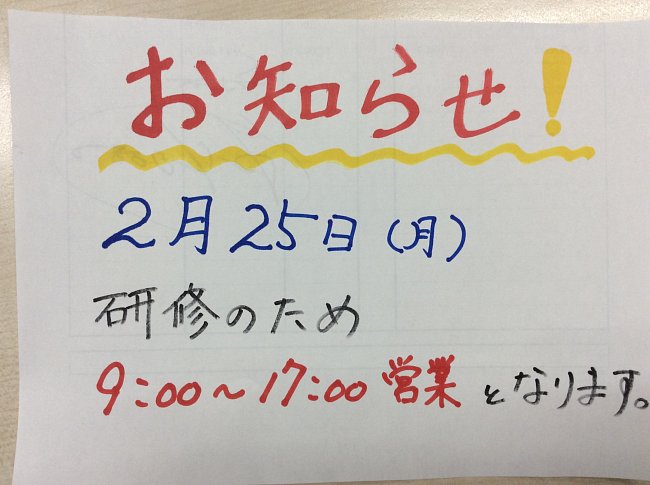 お知らせ!
2月25日(月)
研修のため
9:00~17:00 営業 となります。